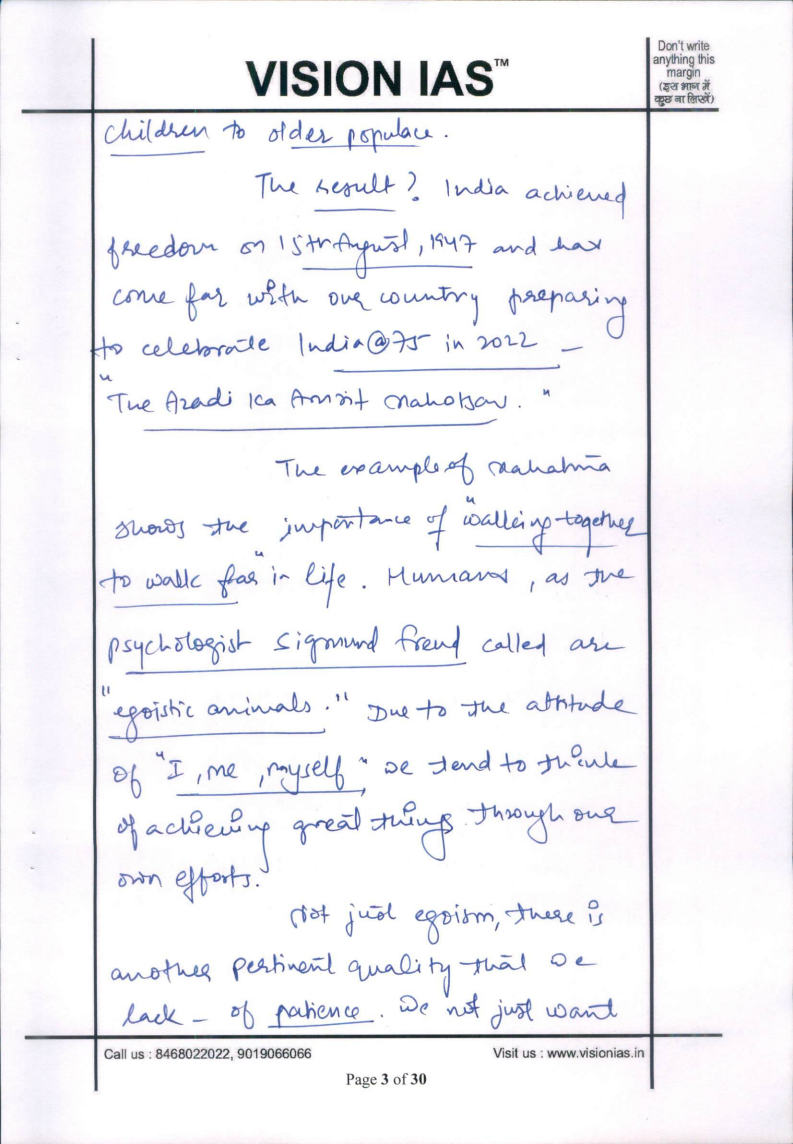 VISION IAS™
Don't write
anything this
margin
(इस भाग में
कुछ ना लिखें)
children to older populace.
The result? India achieved
freedom on 15th August, 1947 and has
come far with our country preparing
to celebrate India@75 in 2022 –
"The Azadi Ka Amrit Mahotsav."
The example of Mahatma
shows the importance of "walking together
to walk far" in life. Humans, as the
psychologist Sigmund Freud called are
"egoistic animals." Due to the attitude
of "I, me, myself" we tend to think
of achieving great things through our
own efforts.
Not just egoism, there is
another pertinent quality that we
lack – of patience. We not just want
Call us : 8468022022, 9019066066
Visit us : www.visionias.in
Page 3 of 30